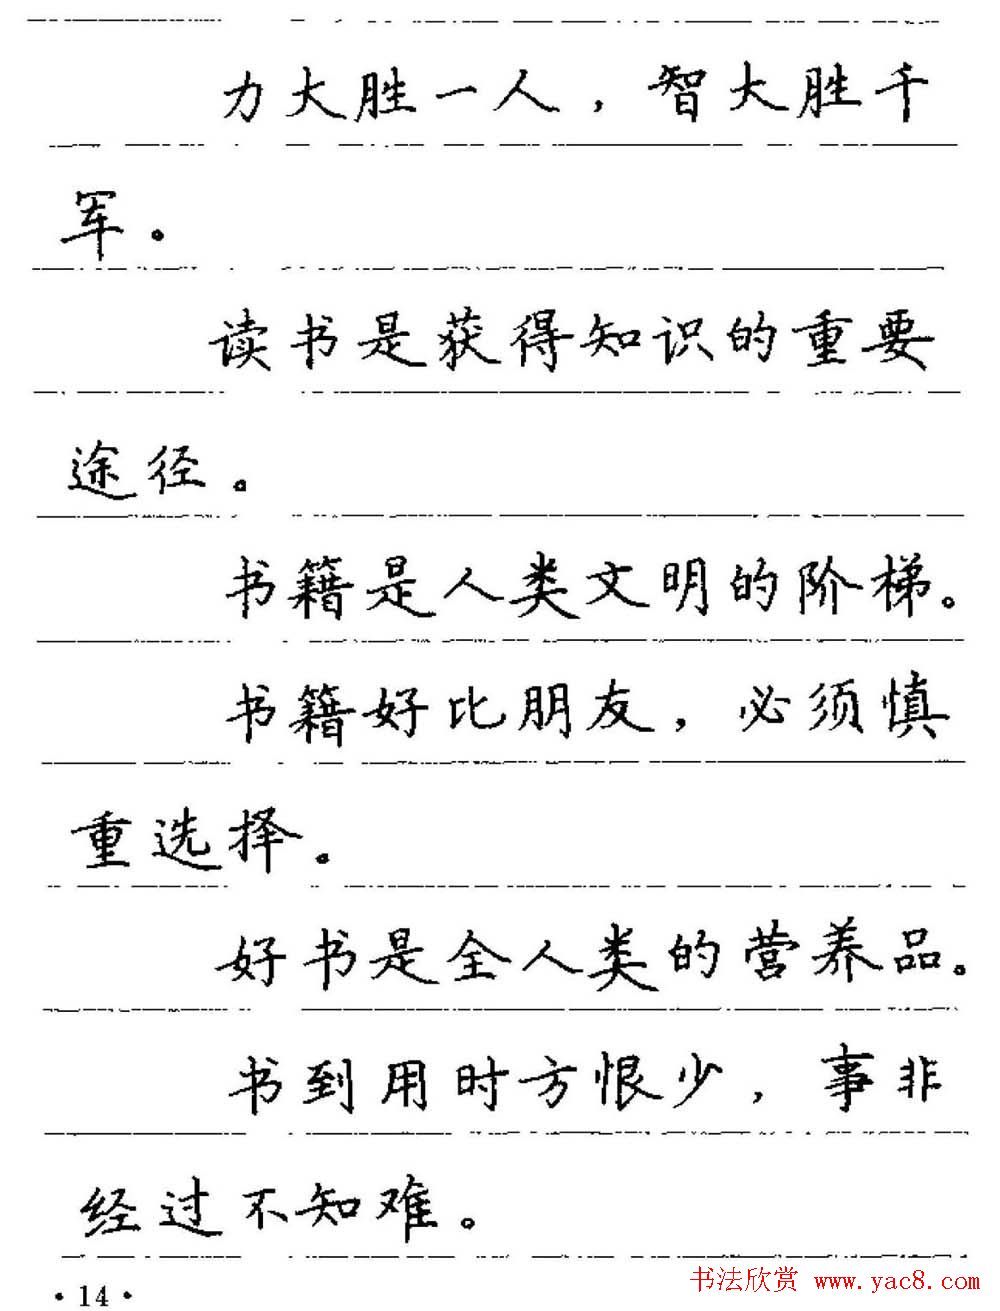 力大胜一人，智大胜千
军。
读书是获得知识的重要
途径。
书籍是人类文明的阶梯。
书籍好比朋友，必须慎
重选择。
好书是全人类的营养品。
书到用时方恨少，事非
经过不知难。
·14·
书法欣赏 www.yac8.com